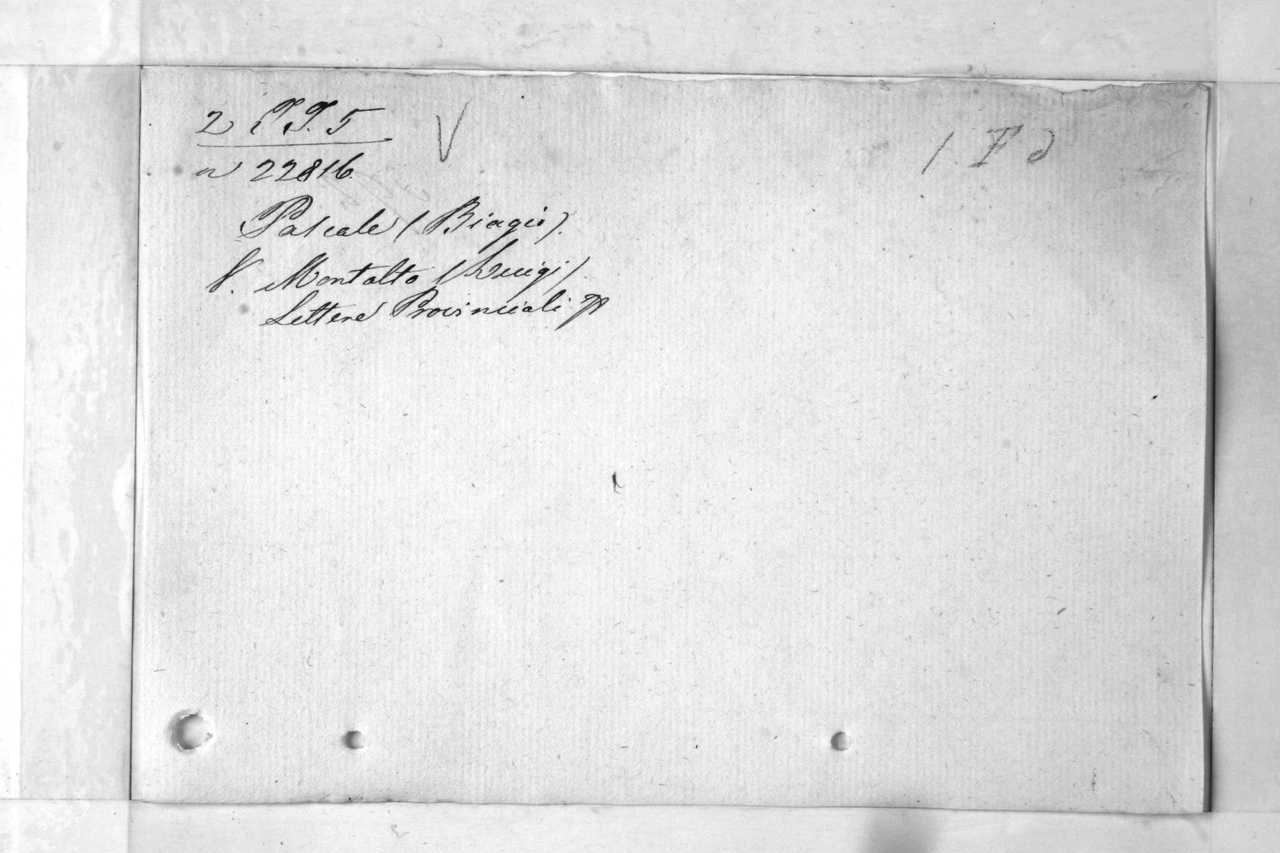 2 T.T. 5 V 1 F d
n 22816.
Pascale (Biagio).
V. Montalto (Luigi).
Lettere Provinciali